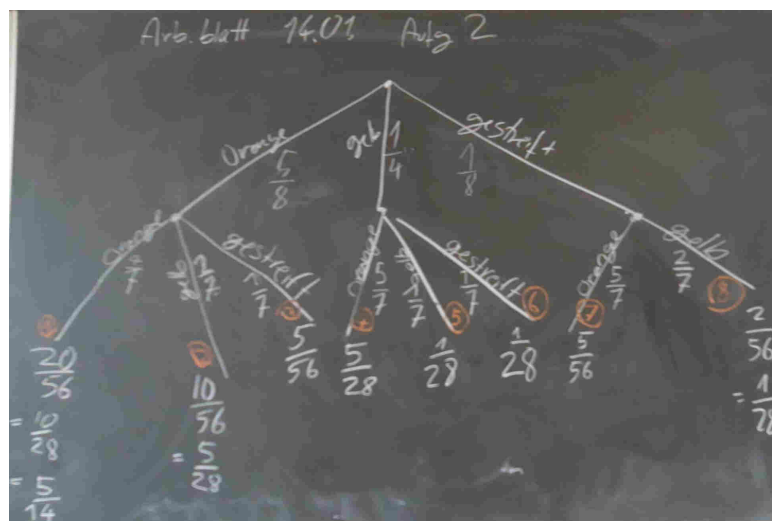 Arb.blatt 14.01 Aufg 2
Orange 5/8
gelb 1/4
gestreift 1/8
Orange 4/7
gelb 2/7
gestreift 1/7
Orange 5/7
gelb 1/7
gestreift 1/7
Orange 5/7
gelb 2/7
① ② ③ ④ ⑤ ⑥ ⑦ ⑧
20/56
= 10/28
= 5/14
10/56
= 5/28
5/56
5/28
1/28
1/28
5/56
2/56
= 1/28